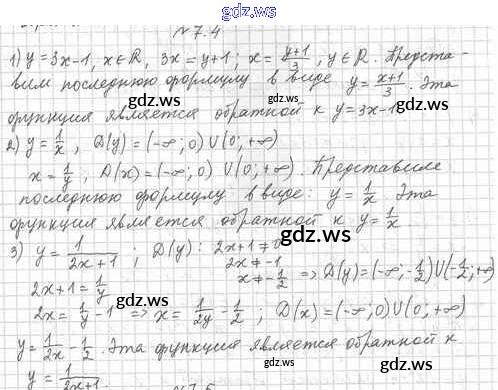 gdz.ws
№7.4
1) y=3x-1, x∈R, 3x=y+1; x=(y+1)/3, y∈R. Предста-
gdz.ws
вим последнюю формулу в виде y=(x+1)/3. Эта
функция является обратной к y=3x-1
gdz.ws
2) y=1/x, D(y)=(-∞;0)∪(0;+∞)
x=1/y, D(x)=(-∞;0)∪(0;+∞). Представиле
gdz.ws gdz.ws
последнюю формулу в виде: y=1/x. Эта
функция является обратной к y=1/x
3) y=1/(2x+1); D(y): 2x+1≠0
gdz.ws
2x≠-1
x≠-1/2 => D(y)=(-∞;-1/2)∪(-1/2;+∞)
2x+1=1/y
2x=1/y-1 => x=1/2y-1/2; D(x)=(-∞;0)∪(0;+∞)
gdz.ws
y=1/2x-1/2. Эта функция является обратной к
gdz.ws
y=1/(2x+1).